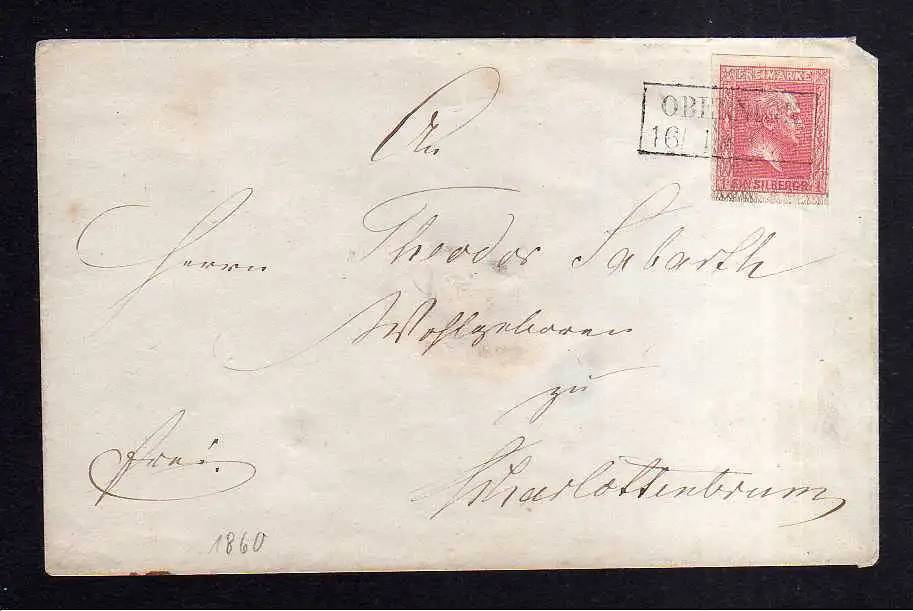 FREIMARKE
16/
1 SILBERGR. 1
An
Herrn Theodor Sabarth
Wohlgeboren
zu
frei. Charlottenbrunn
1860